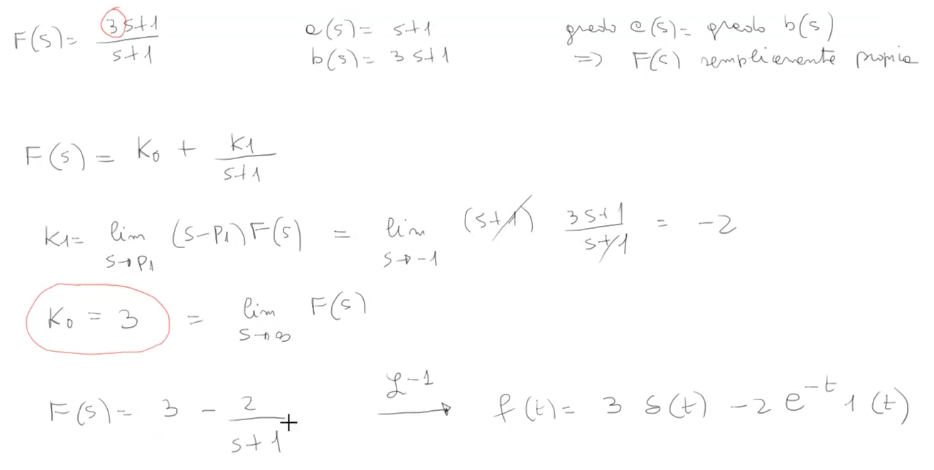 F(s) = (3s+1)/(s+1)   a(s) = s+1   grado a(s) = grado b(s)
b(s) = 3s+1   => F(s) semplicemente propria
F(s) = K0 + K1/(s+1)
K1 = lim s→p1 (s-p1)F(s) = lim s→-1 (s+1) (3s+1)/(s+1) = -2
K0 = 3 = lim s→∞ F(s)
F(s) = 3 - 2/(s+1)   ℒ-1 →   f(t) = 3 δ(t) - 2 e^-t 1(t)